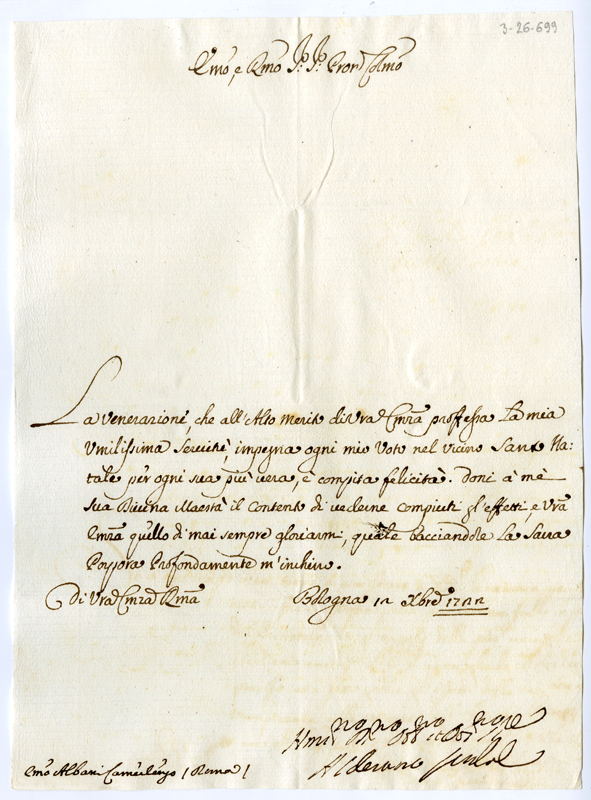 3-26-699
Emo, e Rmo Sr. Sr. Pron Colmo
La venerazione, che all'Alto merito di Vra Emza professa La mia
Umilissima Servitù, impegna ogni mio Voto nel vicino Santo Na=
tale per ogni sua più vera, e compita felicità. Doni à mè
sua Divina Maestà il Contento di vederne compiuti gl'effetti, e Vra
Emza quello di mai sempre gloriarmi, quale bacciandole La Sacra
Porpora Profondamente m'inchino.
Di Vra Emza Rma Bologna 12 Xbre 1722
Hmo
Alderano
Emo Albani Camerlengo (Roma)